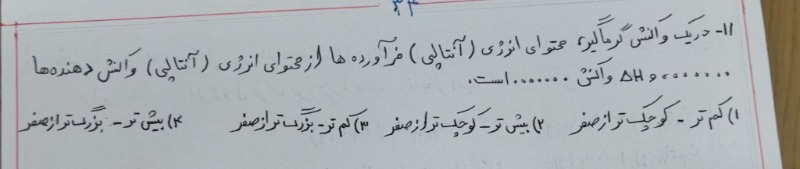 ۳۴
۱۱- در یک واکنش گرماگیر، محتوای انرژی (آنتالپی) فرآورده ها از محتوای انرژی (آنتالپی) واکنش دهنده ها
....... و ΔH واکنش ....... است.
۱) کم تر - کوچک تر از صفر ۲) بیش تر - کوچک تر از صفر ۳) کم تر - بزرگ تر از صفر ۴) بیش تر - بزرگ تر از صفر